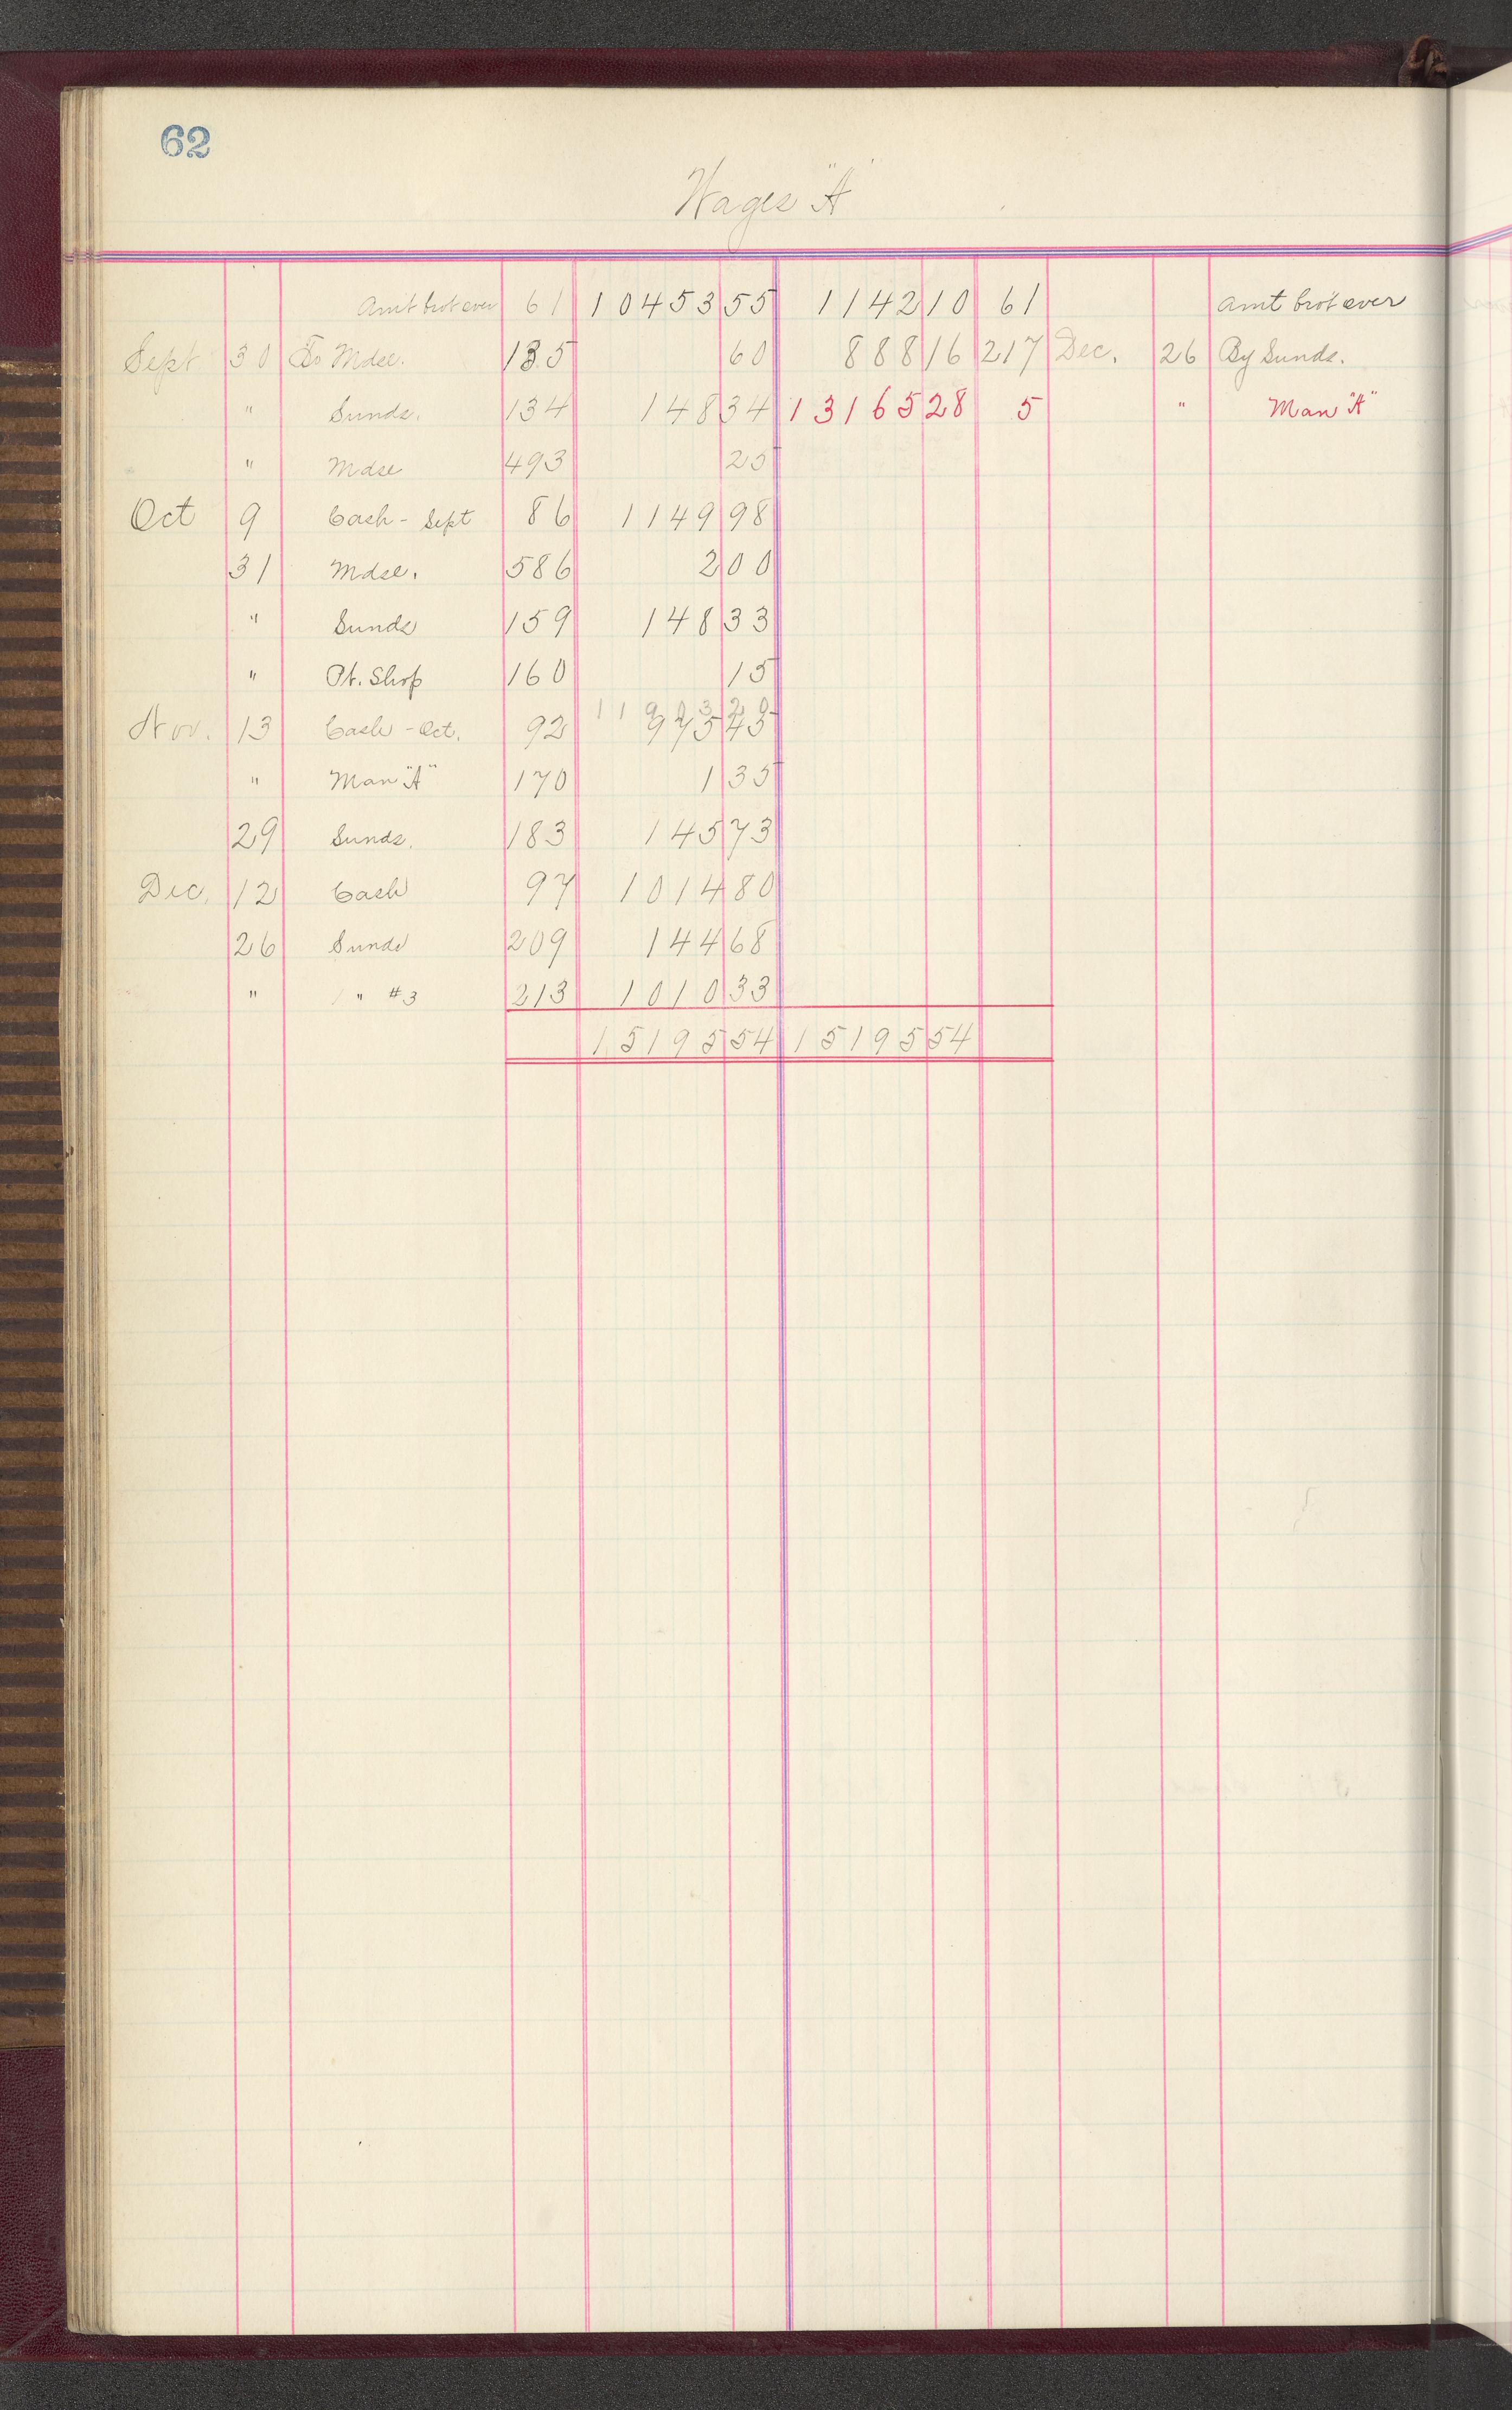 62
Wages "A"
Amt brot over 61 10453 55 1142 10 61 Amt brot over
Sept 30 To Mdse. 135 60 888 16 217 Dec. 26 By Sunds.
" Sunds. 134 148 34 13165 28 5 " Man "A"
" Mdse 493 25
Oct 9 Cash - Sept 86 1149 98
31 Mdse. 586 2 00
" Sunds 159 148 33
" Pt. Shop 160 15
11903 20
Nov. 13 Cash - Oct. 92 975 45
" Man "A" 170 1 35
29 Sunds. 183 145 73
Dec. 12 Cash 97 1014 80
26 Sunds 209 144 68
" " #3 213 1010 33
15195 54 15195 54